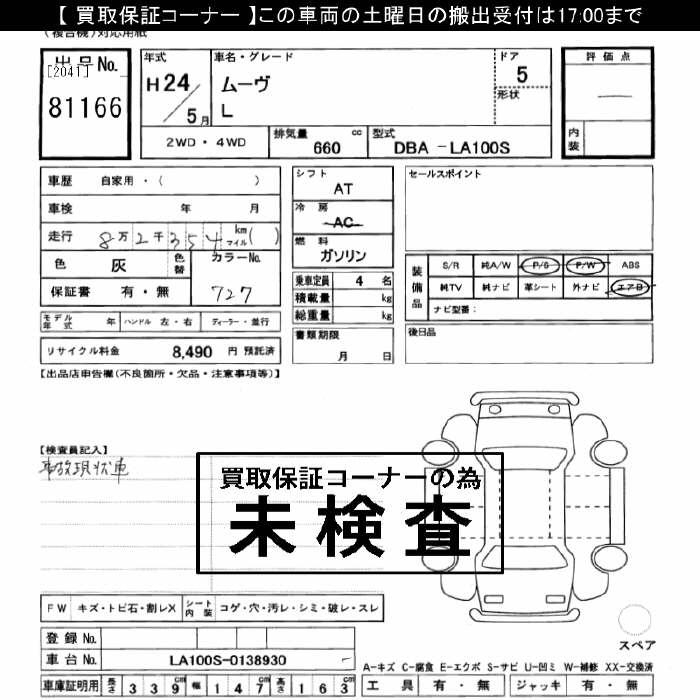 【 買取保証コーナー 】この車両の土曜日の搬出受付は17:00まで
(複合機)対応用紙
出品No.
[2041]
81166
年式
H24/5月
車名・グレード
ムーヴ
L
ドア
5
形状
評価点
内装
2WD・4WD
排気量 cc
660
型式
DBA -LA100S
車歴 自家用・( )
車検 年 月
走行 8万2千354 km マイル( )
色 灰 色替
カラーNo.
727
保証書 有・無
モデル年式 年 ハンドル 左・右 ディーラー・並行
リサイクル料金 8,490 円 預託済
シフト
AT
冷房
AC
燃料
ガソリン
乗車定員 4 名
積載量 kg
総重量 kg
書類期限
月 日
セールスポイント
装備品
S/R 純A/W P/S P/W ABS
純TV 純ナビ 革シート 外ナビ エアB
ナビ型番:
後日品
【出品店申告欄(不良箇所・欠品・注意事項等)】
【検査員記入】
事故現状車
買取保証コーナーの為
未検査
FW キズ・トビ石・割レX シート内装 コゲ・穴・汚レ・シミ・破レ・スレ
登録No.
車台No. LA100S-0138930
スペア
A-キズ C-腐食 E-エクボ S-サビ U-凹ミ W-補修 XX-交換済
車庫証明用 長さ 339cm 幅 147cm 高さ 163cm 工具 有・無 ジャッキ 有・無